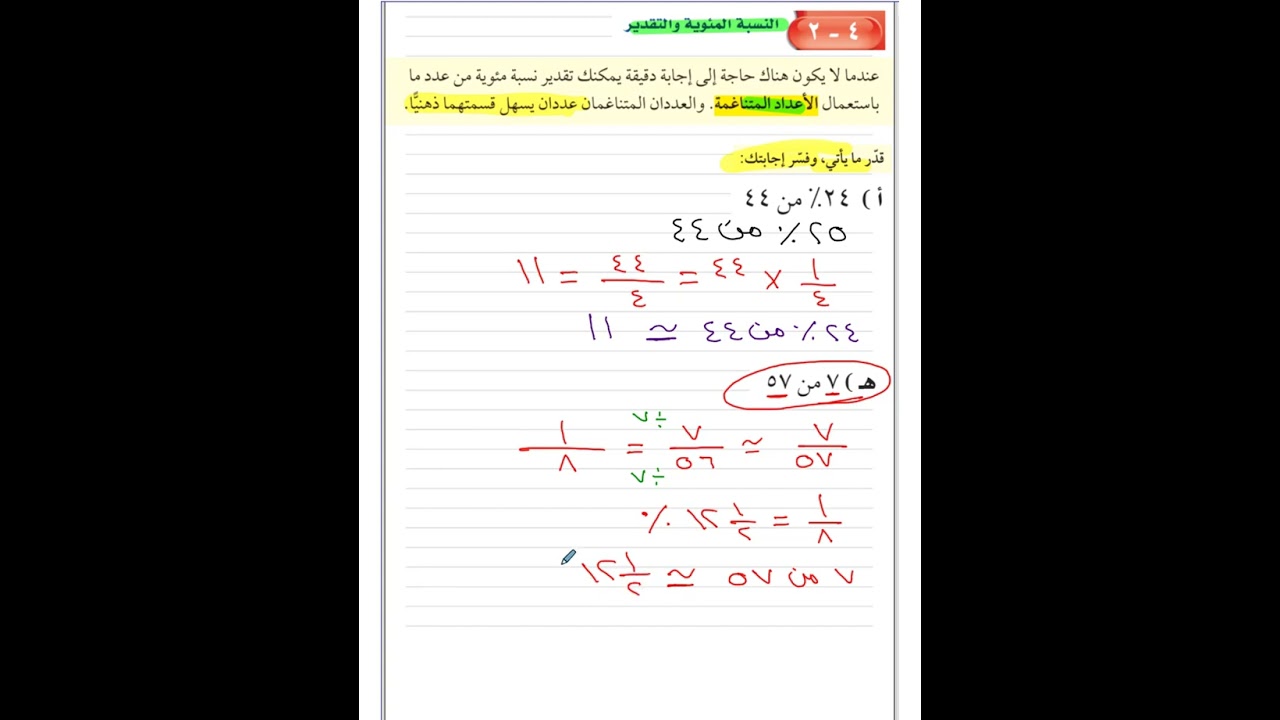 ٤ - ٢ النسبة المئوية والتقدير
عندما لا يكون هناك حاجة إلى إجابة دقيقة يمكنك تقدير نسبة مئوية من عدد ما
باستعمال الأعداد المتناغمة. والعددان المتناغمان عددان يسهل قسمتهما ذهنيًّا.
قدّر ما يأتي، وفسّر إجابتك:
أ ) ٢٤٪ من ٤٤
٢٥٪ من ٤٤
١/٤ × ٤٤ = ٤٤/٤ = ١١
٢٤٪ من ٤٤ ≃ ١١
هـ ) ٧ من ٥٧
٧/٥٧ ≃ ٧/٥٦ = ١/٨
÷٧
÷٧
١/٨ = ١٢ ١/٢ ٪
٧ من ٥٧ ≃ ١٢ ١/٢